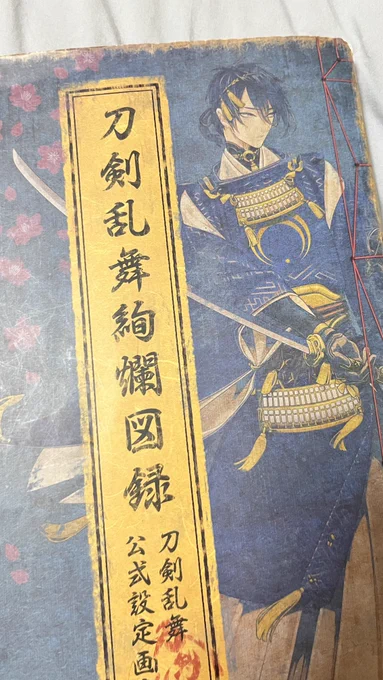 刀剣乱舞絢爛図録
刀剣乱舞
公式設定画